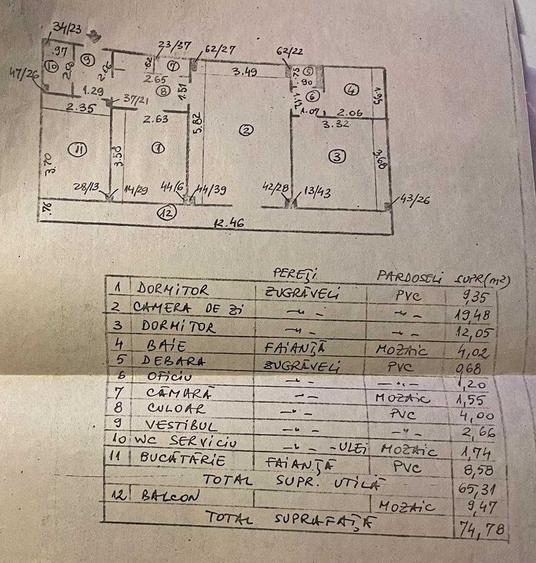 34/23
.97
9
2.06
2.06
10
47/26
1.29
2.35
23/37
.62
7
2.65
8
1.51
62/27
3.49
62/22
.73
5
.90
6
4
1.95
1.07
2.06
3.32
37/21
2.63
5.82
2
3
3.68
11
3.70
3.58
1
28/13
14/29
44/6
44/39
42/28
13/43
43/26
.76
12
12.46
PEREȚI PARDOSELI SUPR(m²)
1 DORMITOR ZUGRĂVELI PVC 9,35
2 CAMERA DE ZI —"— —"— 19,48
3 DORMITOR —"— —"— 12,05
4 BAIE FAIANȚĂ MOZAIC 4,02
5 DEBARA ZUGRĂVELI PVC 0,68
6 OFICIU —"— —"— 1,20
7 CĂMARĂ —"— MOZAIC 1,55
8 CULOAR —"— PVC 4,00
9 VESTIBUL —"— —"— 2,66
10 WC SERVICIU —"— -ULEI MOZAIC 1,74
11 BUCĂTĂRIE FAIANȚĂ PVC 8,58
TOTAL SUPR. UTILĂ 65,31
12 BALCON MOZAIC 9,47
TOTAL SUPRAFAȚĂ 74,78